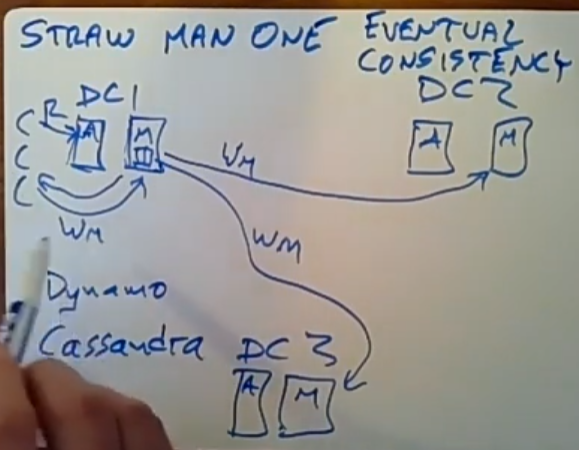 STRAW MAN ONE
EVENTUAL
CONSISTENCY
DC1
DC2
C
R
A
M
C
C
A
M
WM
WM
WM
Dynamo
Cassandra
DC 3
A
M